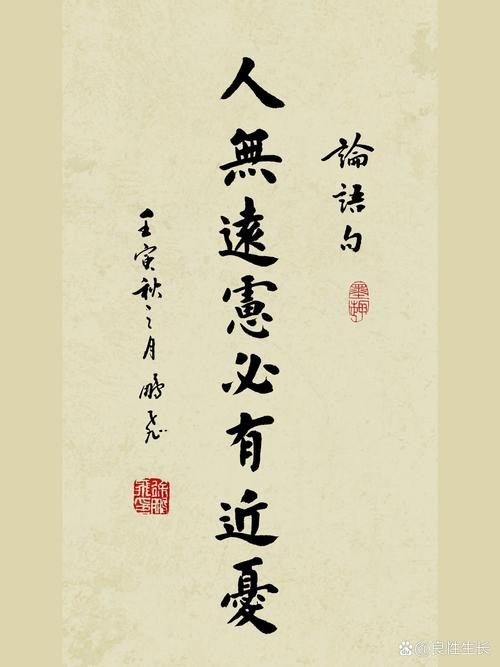 論語句
人無遠慮必有近憂
壬寅秋之月鵬飛
良性生长